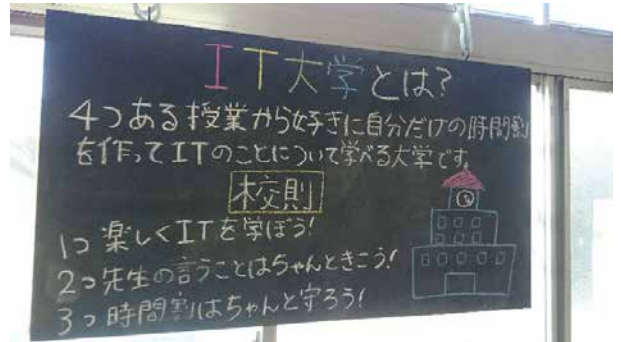 IT大学とは?
4つある授業から好きに自分だけの時間割
を作ってITのことについて学べる大学です。
校則
1つ楽しくITを学ぼう!
2つ先生の言うことはちゃんときこう!
3つ時間割はちゃんと守ろう!